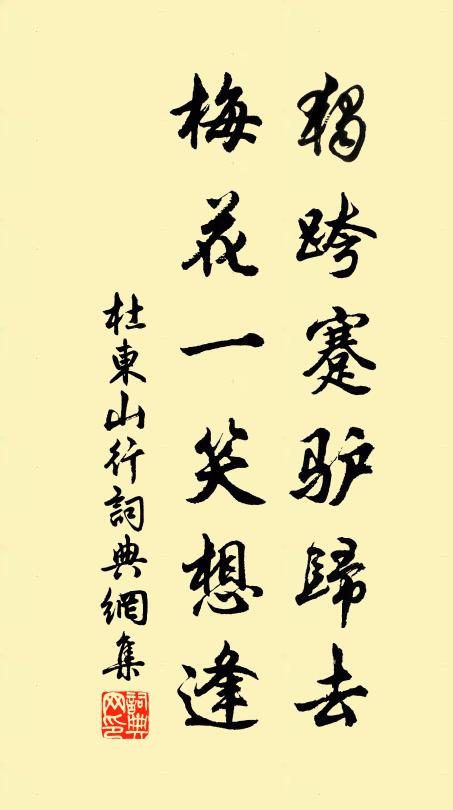 獨跨蹇驴歸去
梅花一笑想逢
杜東山行詞典網集
詞典网印